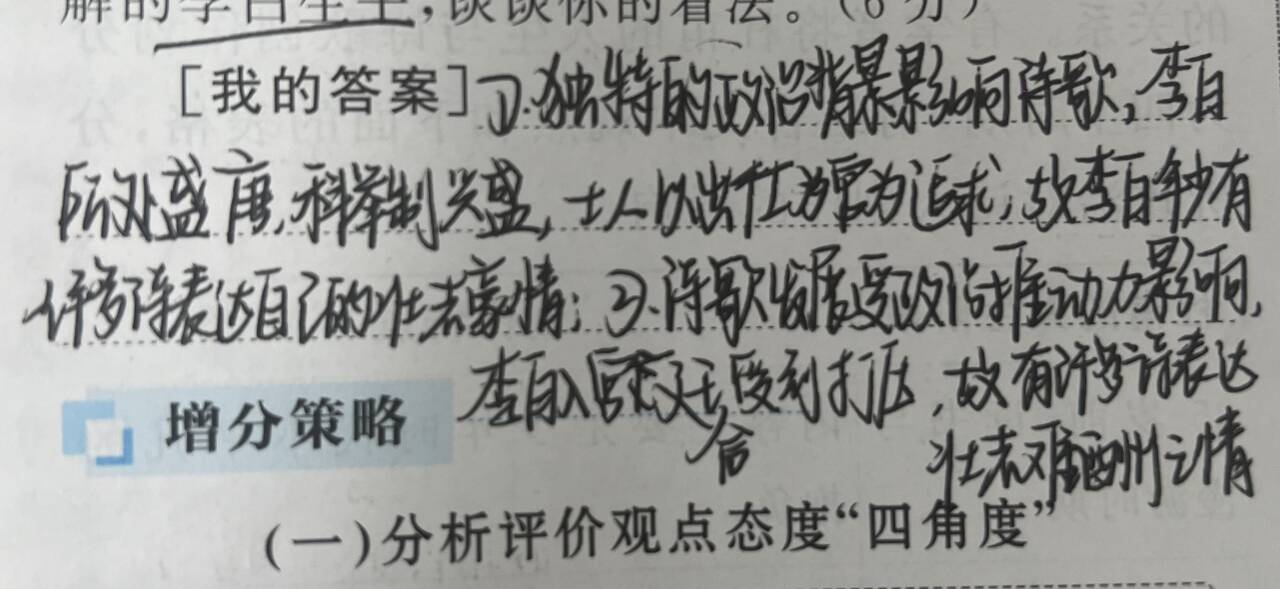 解的李白生平,谈谈你的看法。(6分)
[我的答案]①.独特的政治背景影响诗歌,李白
所处盛唐,科举制兴盛,士人以出仕为官为追求,故李白年少有
许多诗表达自己的壮志豪情;②.诗歌发展受政治推动力影响,
李白入宫廷,受到打压,故有许多诗表达
壮志难酬之情
增分策略
(一)分析评价观点态度“四角度”